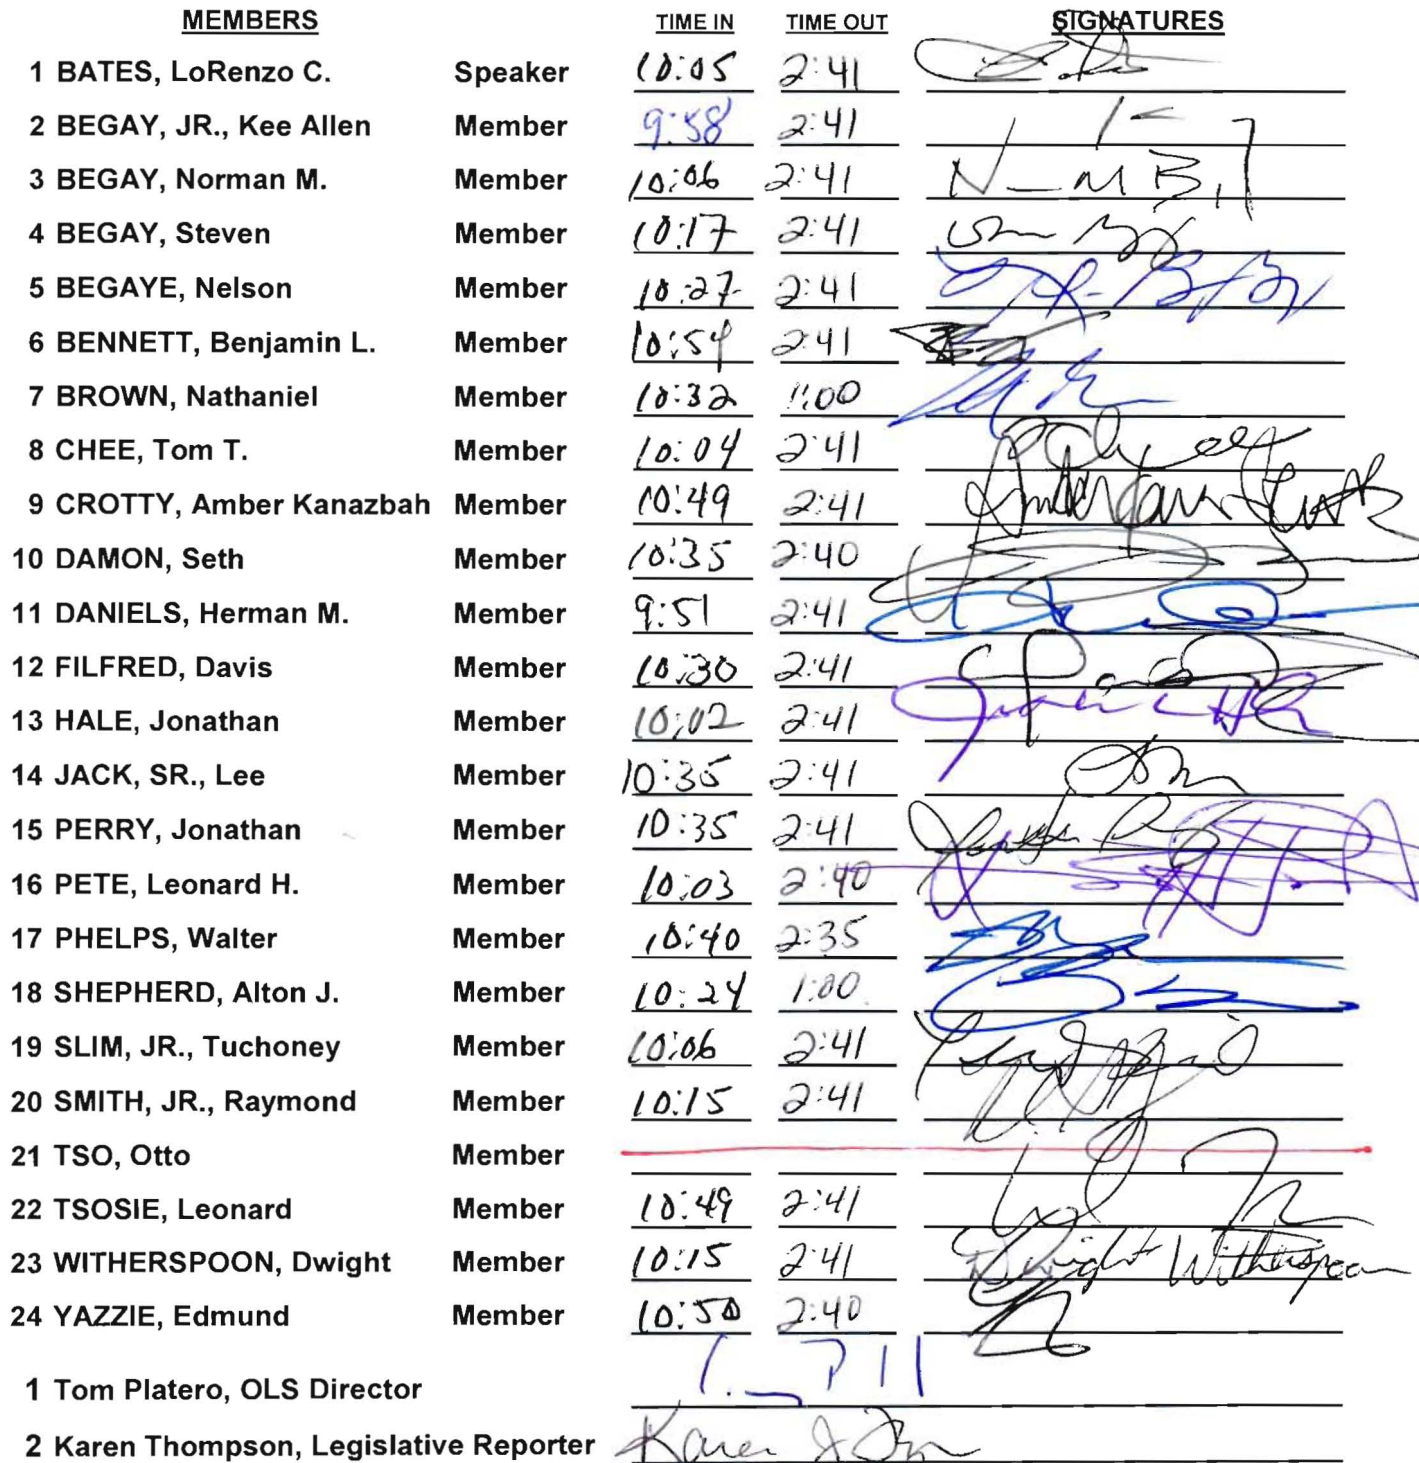 MEMBERS TIME IN TIME OUT SIGNATURES
1 BATES, LoRenzo C. Speaker 10:05 2:41
2 BEGAY, JR., Kee Allen Member 9:58 2:41
3 BEGAY, Norman M. Member 10:06 2:41
4 BEGAY, Steven Member 10:17 2:41
5 BEGAYE, Nelson Member 10:27 2:41
6 BENNETT, Benjamin L. Member 10:54 2:41
7 BROWN, Nathaniel Member 10:32 1:00
8 CHEE, Tom T. Member 10:04 2:41
9 CROTTY, Amber Kanazbah Member 10:49 2:41
10 DAMON, Seth Member 10:35 2:40
11 DANIELS, Herman M. Member 9:51 2:41
12 FILFRED, Davis Member 10:30 2:41
13 HALE, Jonathan Member 10:02 2:41
14 JACK, SR., Lee Member 10:35 2:41
15 PERRY, Jonathan Member 10:35 2:41
16 PETE, Leonard H. Member 10:03 2:40
17 PHELPS, Walter Member 10:40 2:35
18 SHEPHERD, Alton J. Member 10:24 1:00
19 SLIM, JR., Tuchoney Member 10:06 2:41
20 SMITH, JR., Raymond Member 10:15 2:41
21 TSO, Otto Member
22 TSOSIE, Leonard Member 10:49 2:41
23 WITHERSPOON, Dwight Member 10:15 2:41 Dwight Witherspoon
24 YAZZIE, Edmund Member 10:50 2:40
1 Tom Platero, OLS Director
2 Karen Thompson, Legislative Reporter Karen